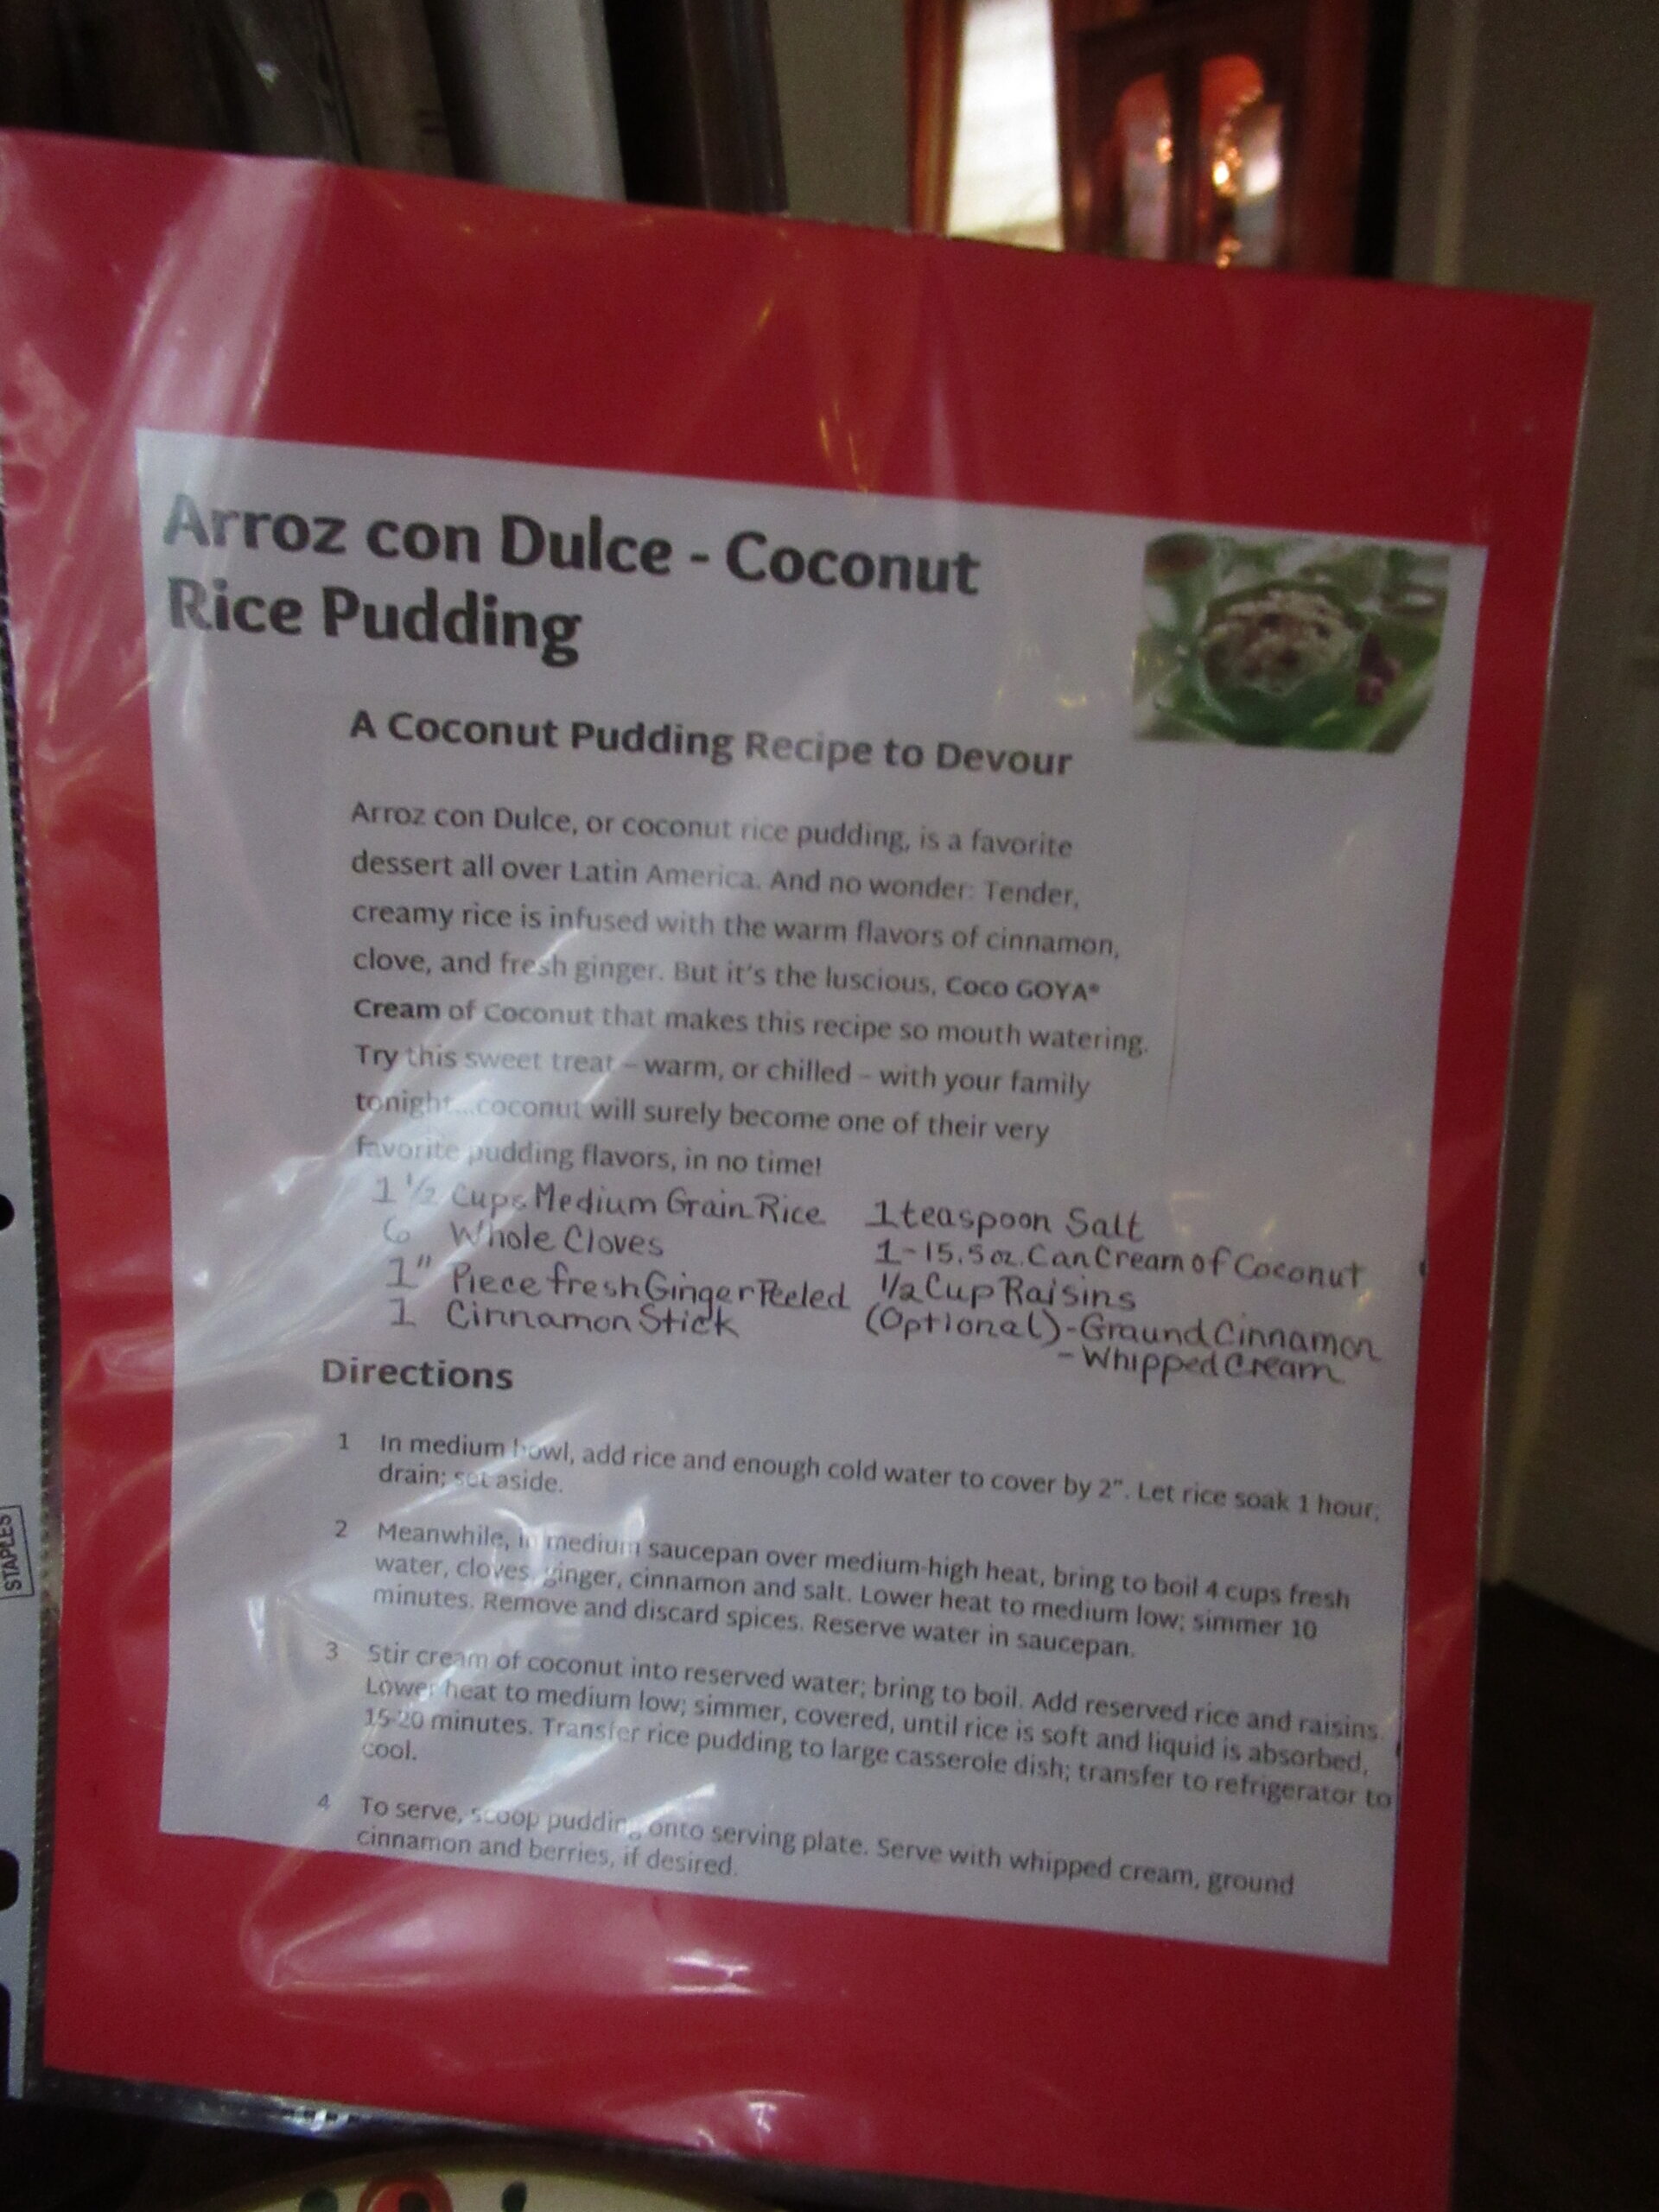 Arroz con Dulce - Coconut
Rice Pudding
A Coconut Pudding Recipe to Devour
Arroz con Dulce, or coconut rice pudding, is a favorite
dessert all over Latin America. And no wonder: Tender,
creamy rice is infused with the warm flavors of cinnamon,
clove, and fresh ginger. But it's the luscious, Coco GOYA®
Cream of Coconut that makes this recipe so mouth watering.
Try this sweet treat – warm, or chilled – with your family
tonight...coconut will surely become one of their very
favorite pudding flavors, in no time!
1 1/2 Cups Medium Grain Rice
6 Whole Cloves
1" Piece fresh Ginger Peeled
1 Cinnamon Stick
1 teaspoon Salt
1-15.5 oz. Can Cream of Coconut
1/2 Cup Raisins
(Optional)-Graund Cinnamon
-Whipped Cream
Directions
1 In medium bowl, add rice and enough cold water to cover by 2". Let rice soak 1 hour;
drain; set aside.
2 Meanwhile, in medium saucepan over medium-high heat, bring to boil 4 cups fresh
water, cloves, ginger, cinnamon and salt. Lower heat to medium low; simmer 10
minutes. Remove and discard spices. Reserve water in saucepan.
3 Stir cream of coconut into reserved water; bring to boil. Add reserved rice and raisins.
Lower heat to medium low; simmer, covered, until rice is soft and liquid is absorbed,
15-20 minutes. Transfer rice pudding to large casserole dish; transfer to refrigerator to
cool.
4 To serve, scoop pudding onto serving plate. Serve with whipped cream, ground
cinnamon and berries, if desired.
STAPLES